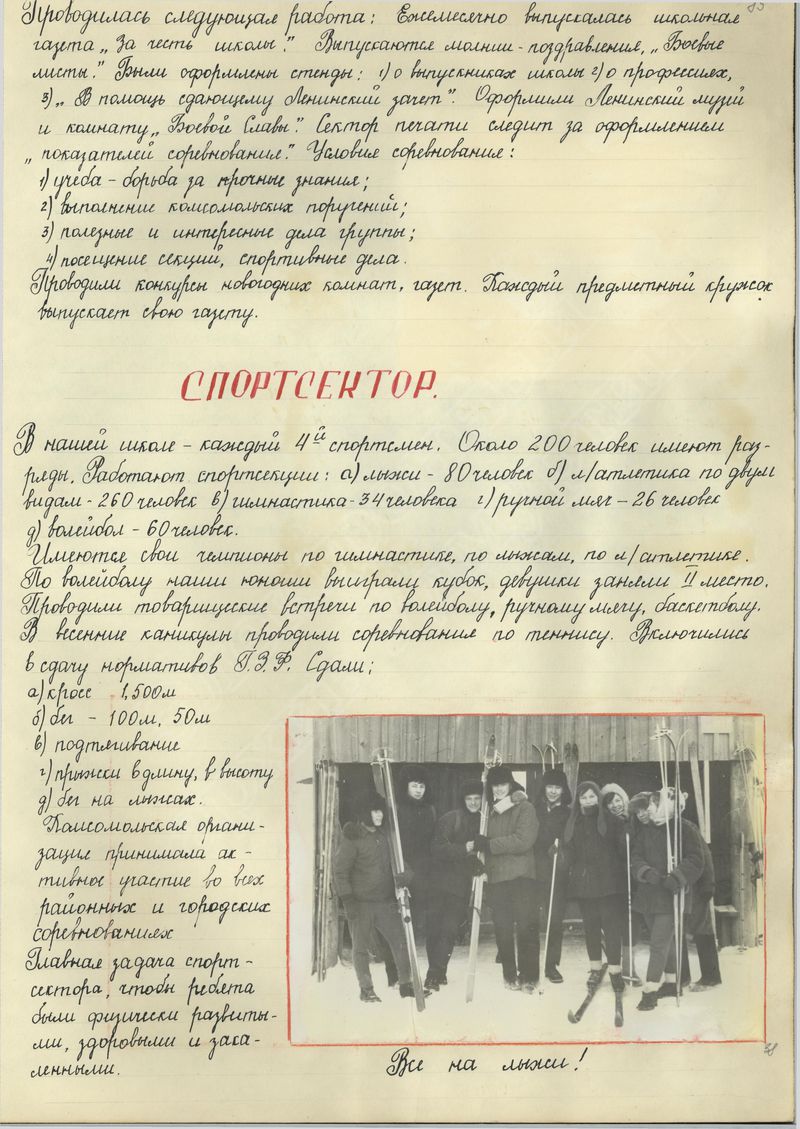 83
Проводилась следующая работа: Ежемесячно выпускалась школьная
газета „За честь школы". Выпускаются молнии - поздравления, „Боевые
листы". Были оформлены стенды: 1) о выпускниках школы 2) о профессиях,
3) „В помощь сдающему Ленинский зачет". Оформили Ленинский музей
и комнату „Боевой Славы". Сектор печати следит за оформлением
„показателей соревнования". Условия соревнования:
1) учеба - борьба за прочные знания;
2) выполнение комсомольских поручений;
3) полезные и интересные дела группы;
4) посещение секций, спортивные дела.
Проводили конкурсы новогодних комнат, газет. Каждый предметный кружок
выпускает свою газету.
СПОРТСЕКТОР.
В нашей школе - каждый 4й спортсмен. Около 200 человек имеют раз-
ряды. Работают спортсекции: а) лыжи - 80 человек б) л/атлетика по двум
видам - 260 человек в) гимнастика - 34 человека г) ручной мяч - 26 человек
д) волейбол - 60 человек.
Имеются свои чемпионы по гимнастике, по лыжам, по л/атлетике.
По волейболу наши юноши выиграли кубок, девушки заняли II место.
Проводили товарищеские встречи по волейболу, ручному мячу, баскетболу.
В весенние каникулы проводили соревнования по теннису. Включились
в сдачу нормативов П.З.Р. Сдали;
а) кросс 1,500м
б) бег - 100м, 50м
в) подтягивание
г) прыжки в длину, в высоту
д) бег на лыжах.
Комсомольская органи-
зация принимала ак-
тивное участие во всех
районных и городских
соревнованиях
Главная задача спорт-
сектора, чтобы ребята
были физически развиты-
ми, здоровыми и зака-
ленными.
Все на лыжи!
38